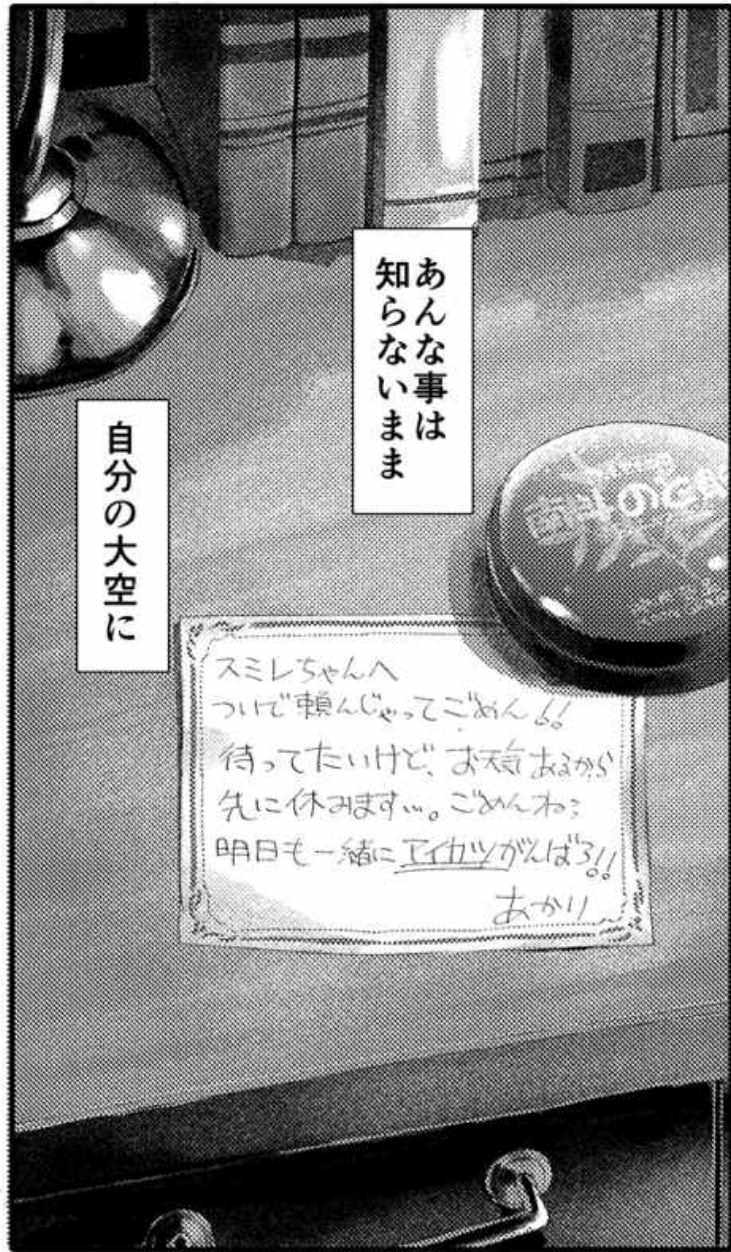 あんな事は
知らないまま
自分の大空に
スミレちゃんへ
ついで頼んじゃってごめん!!
待ってたいけど、お天気あるから
先に休みます…。ごめんね:
明日も一緒にアイカツがんばろ!!
あかり